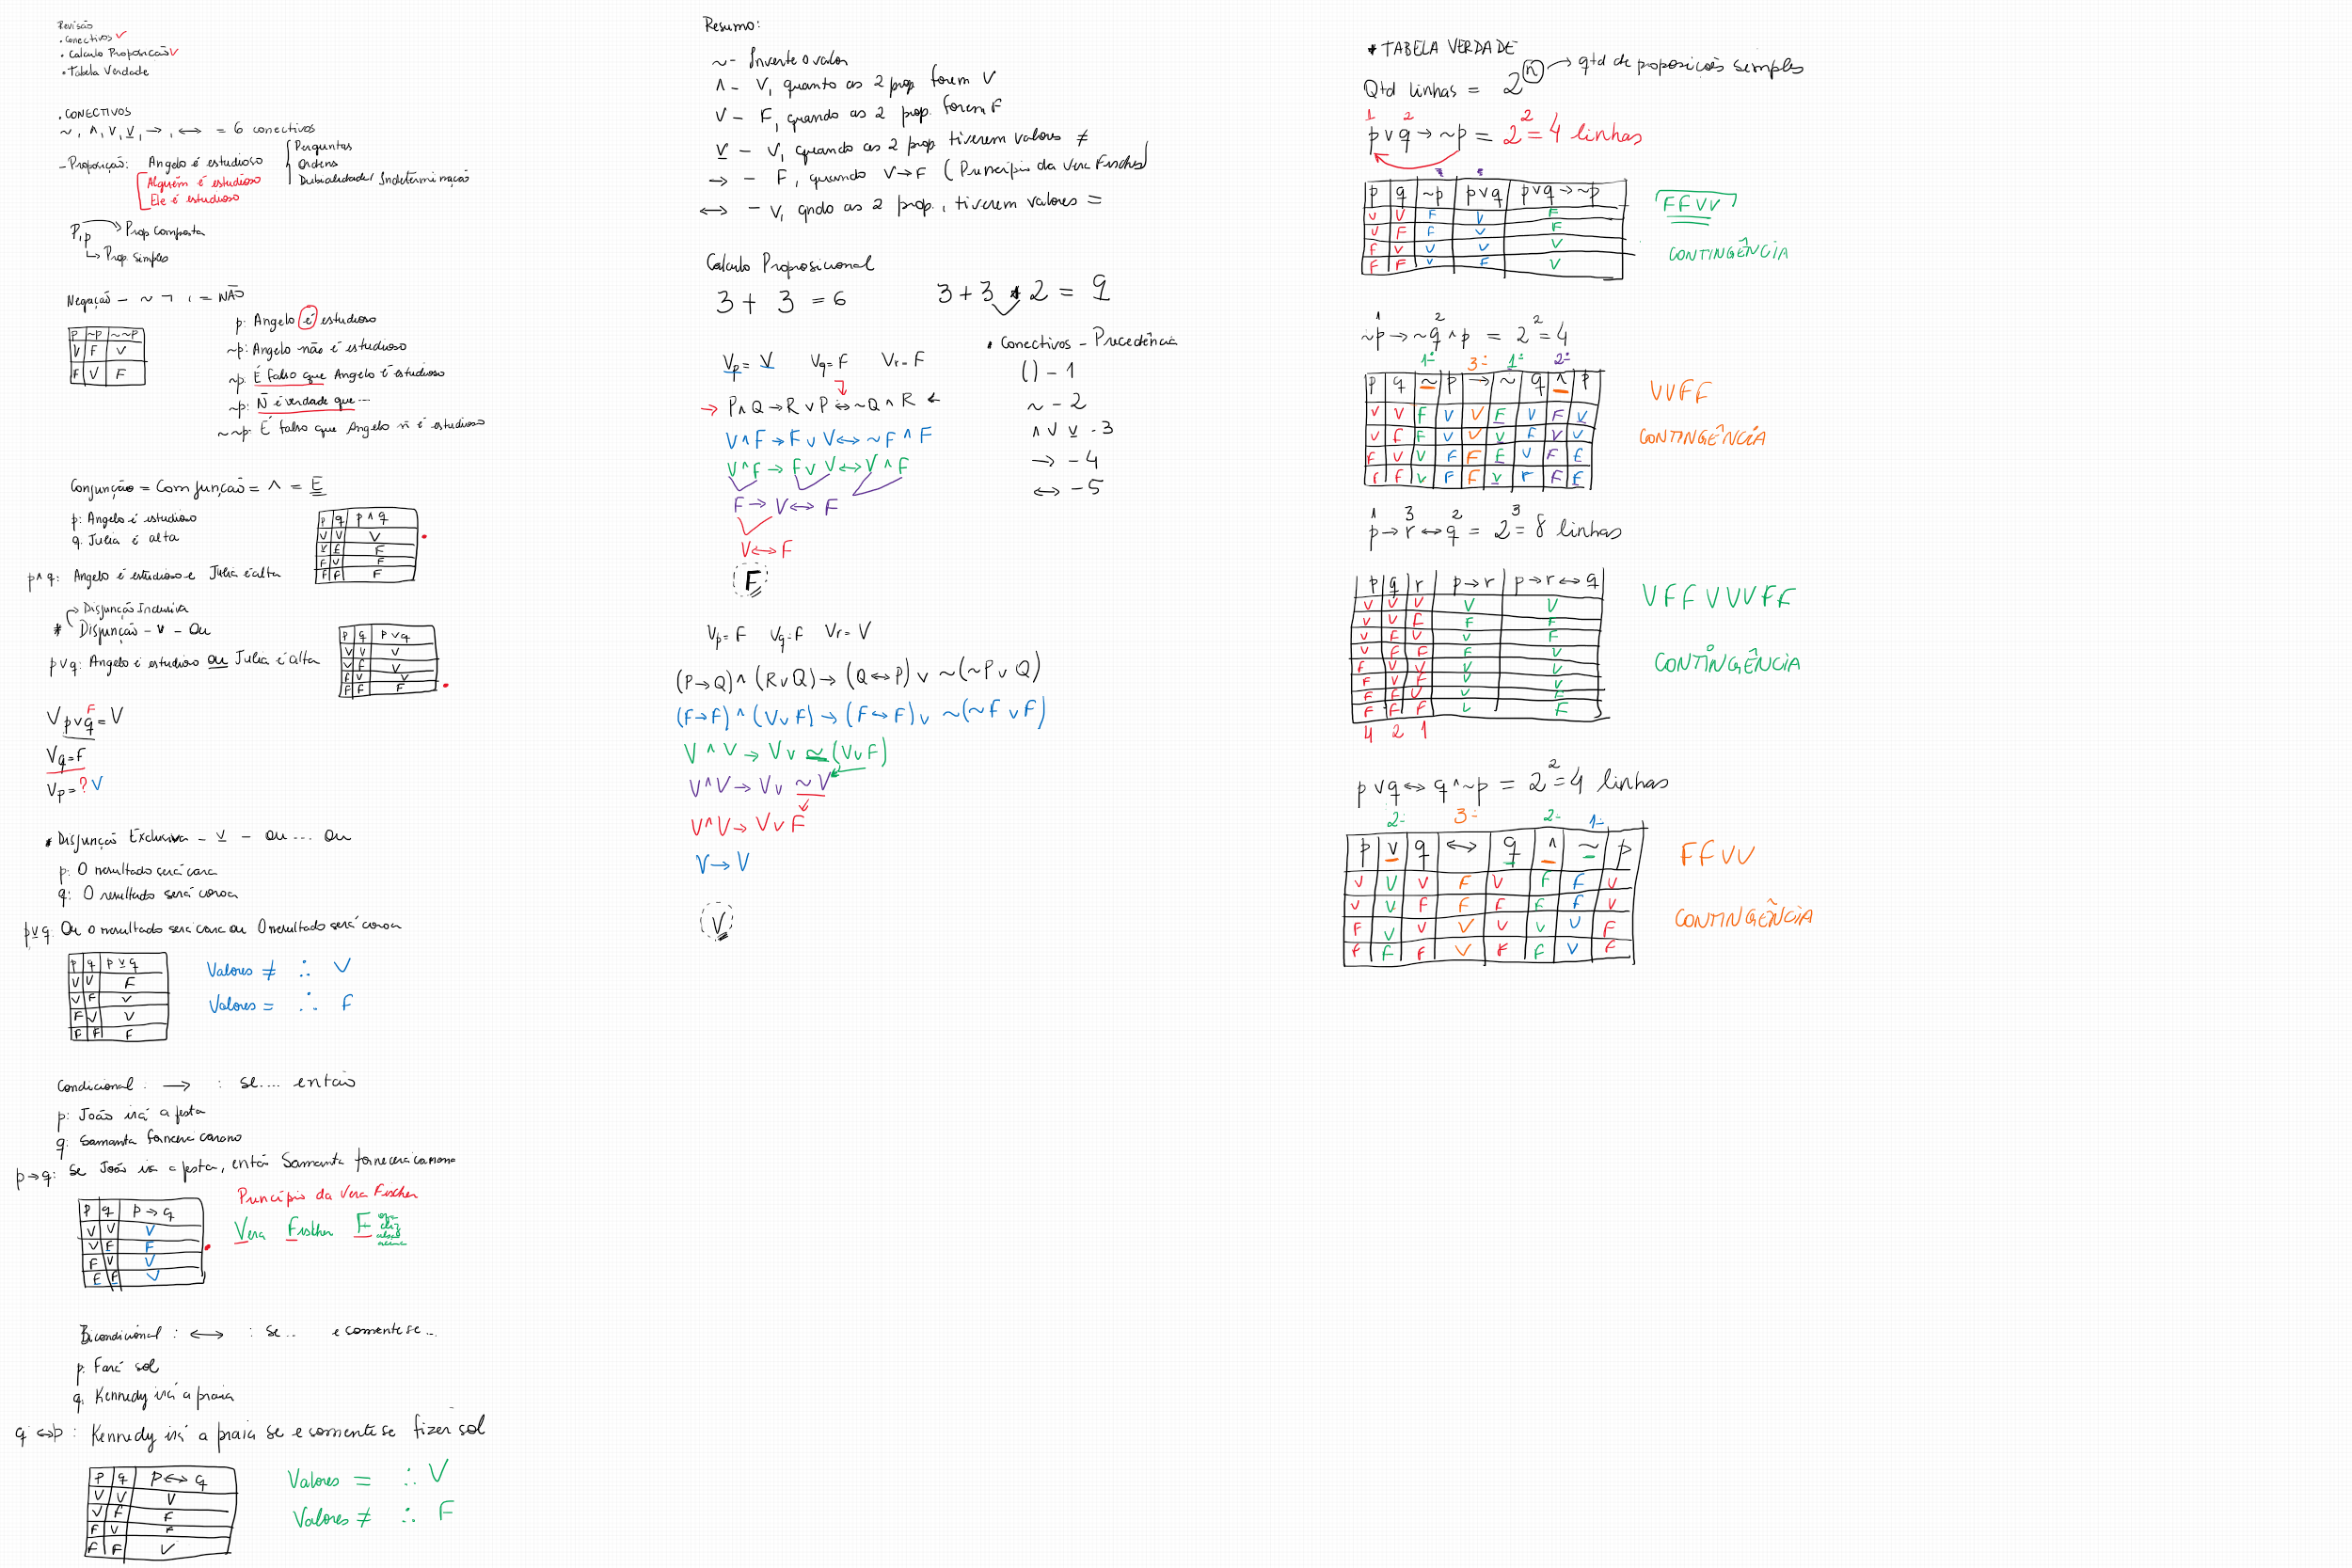 Revisão
• Conectivos ✓
• Calculo Proposicão ✓
• Tabela Verdade
. CONECTIVOS
~, ∧, ∨, ⊻, →, ↔ = 6 conectivos
- Proposição: Angelo é estudioso
Alguém é estudioso
Ele é estudioso
Perguntas
Ordens
Dubialidade/Indeterminação
P, p → Prop Composta
↳ Prop. Simples
Negação - ~ ¬ , = NÃO
p ~p ~~p
V F V
F V F
p: Angelo é estudioso
~p: Angelo não é estudioso
~p: É falso que Angelo é estudioso
~p: Ñ é verdade que...
~~p: É falso que Angelo ñ é estudioso
Conjunção = Com junção = ∧ = E
p: Angelo é estudioso
q: Julia é alta
p q p ∧ q
V V V
V F F
F V F
F F F
p ∧ q: Angelo é estudioso e Julia é alta
→ Disjunção Inclusiva
* Disjunção - v - Ou
p v q: Angelo é estudioso ou Julia é alta
p q p v q
V V V
V F V
F V V
F F F
V p v q = V
F
Vq = F
Vp = ? V
* Disjunção Exclusiva - ⊻ - ou ... ou
p: O resultado será cara
q: O resultado será coroa
p ⊻ q: Ou o resultado será cara ou O resultado será coroa
p q p ⊻ q
V V F
V F V
F V V
F F F
Valores ≠ ∴ V
Valores = ∴ F
Condicional: → : se.... então
p: João irá a festa
q: Samanta fornecerá carona
p → q: Se João irá a festa, então Samanta fornecerá carona
p q p → q
V V V
V F F
F V V
F F V
Princípio da Vera Fischer
Vera Fischer F
Bicondicional: ↔ : se... e comente se...
p: Fará sol
q: Kennedy irá a praia
q ↔ p: Kennedy irá a praia se e comente se fizer sol
p q p ↔ q
V V V
V F F
F V F
F F V
Valores = ∴ V
Valores ≠ ∴ F
Resumo:
~ - Inverte o valor
∧ - V, quanto as 2 prop forem V
V - F, quando as 2 prop. forem F
⊻ - V, quando as 2 prop tiverem valores ≠
→ - F, quando V → F (Princípio da Vera Fischer)
↔ - V, qndo as 2 prop., tiverem valores =
Calculo Proposicional
3 + 3 = 6
3 + 3 * 2 = 9
Vp = V Vq = F Vr = F
→ P ∧ Q → R v P ↔ ~Q ∧ R ←
V ∧ F → F v V ↔ ~F ∧ F
V ∧ F → F v V ↔ V ∧ F
F → V ↔ F
V ↔ F
F
• Conectivos - Precedência
( ) - 1
~ - 2
∧ V ⊻ - 3
→ - 4
↔ - 5
Vp = F Vq = F Vr = V
(P → Q) ∧ (R v Q) → (Q ↔ P) v ~(~P v Q)
(F → F) ∧ (V v F) → (F ↔ F) v ~(~F v F)
V ∧ V → V v ~(V v F)
V ∧ V → V v ~V
V ∧ V → V v F
V → V
V
* TABELA VERDADE
Qtd linhas = 2ⁿ → qtd de proposições simples
1 2
p v q → ~p = 2² = 4 linhas
p q ~p p v q p v q → ~p
V V F V F
V F F V F
F V V V V
F F V F V
FFVV
CONTINGÊNCIA
1 2
~p → ~q ∧ p = 2² = 4
1º 3º 1º 2º
p q ~ p → ~ q ∧ p
V V F V V F V F V
V F F V V V F V V
F V V F F F V F F
F F V F F V F F F
VVFF
CONTINGÊNCIA
1 3 2
p → r ↔ q = 2³ = 8 linhas
p q r p → r p → r ↔ q
V V V V V
V V F F F
V F V V F
V F F F V
F V V V V
F V F V V
F F V V F
F F F V F
4 2 1
VFFVVVFF
CONTINGÊNCIA
p v q ↔ q ∧ ~p = 2² = 4 linhas
2º 3º 2º 1º
p v q ↔ q ∧ ~ p
V V V F V F F V
V V F F F F F V
F V V V V V V F
F F F V F F V F
FFVV
CONTINGÊNCIA